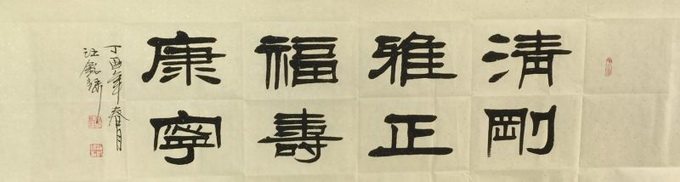 清剛
雅正
福壽
康寧
丁酉年春月